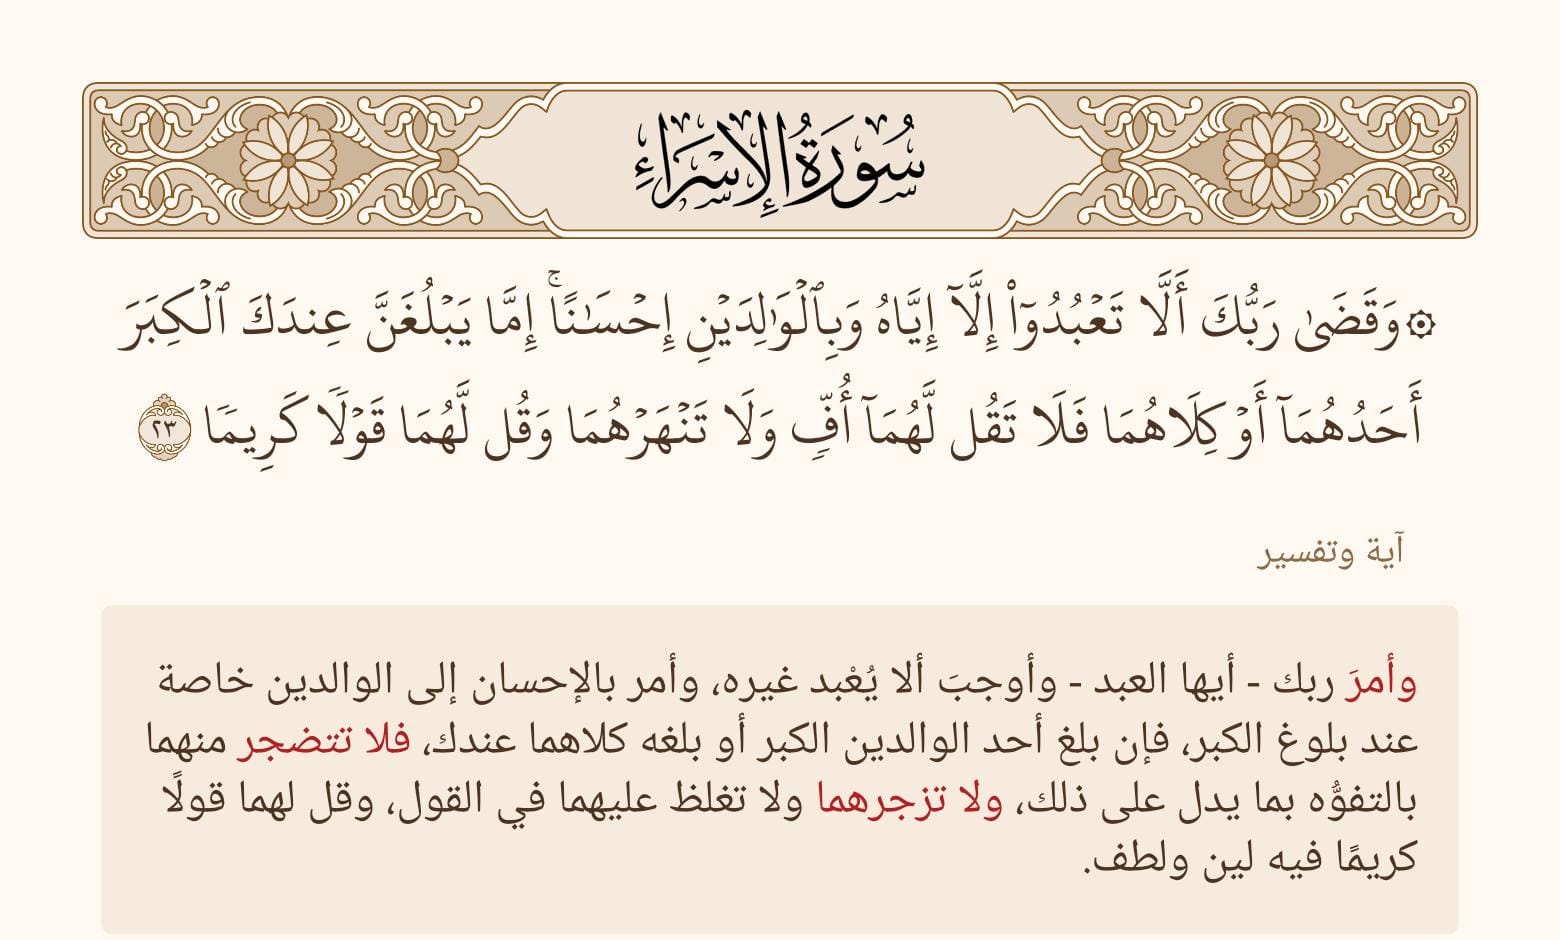 سُورَةُ الإِسْرَاءِ
۞ وَقَضَىٰ رَبُّكَ أَلَّا تَعۡبُدُوٓاْ إِلَّآ إِيَّاهُ وَبِٱلۡوَٰلِدَيۡنِ إِحۡسَٰنًاۚ إِمَّا يَبۡلُغَنَّ عِندَكَ ٱلۡكِبَرَ
أَحَدُهُمَآ أَوۡ كِلَاهُمَا فَلَا تَقُل لَّهُمَآ أُفّٖ وَلَا تَنۡهَرۡهُمَا وَقُل لَّهُمَا قَوۡلٗا كَرِيمٗا ٢٣
آية وتفسير
وأمرَ ربك - أيها العبد - وأوجبَ ألا يُعْبد غيره، وأمر بالإحسان إلى الوالدين خاصة
عند بلوغ الكبر، فإن بلغ أحد الوالدين الكبر أو بلغه كلاهما عندك، فلا تتضجر منهما
بالتفوُّه بما يدل على ذلك، ولا تزجرهما ولا تغلظ عليهما في القول، وقل لهما قولًا
كريمًا فيه لين ولطف.